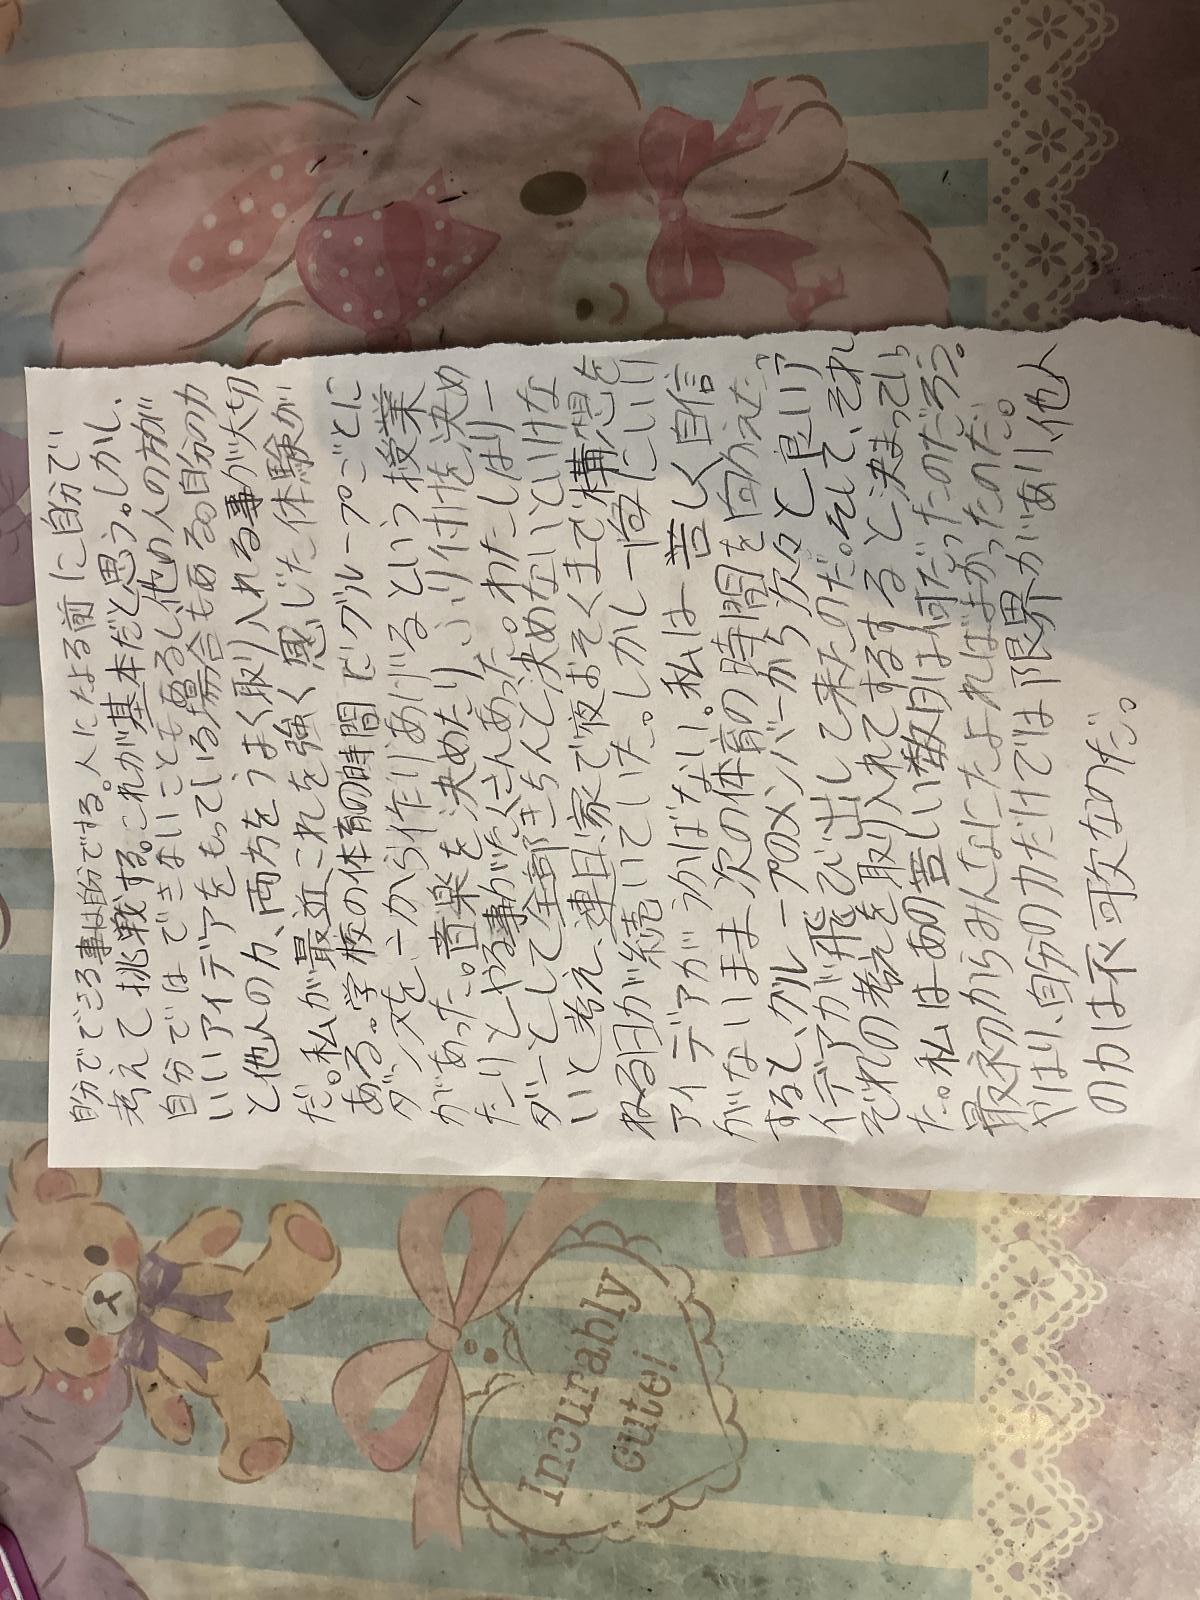 自分でできる事は自分でする。人にたよる前に自分で
考えて挑戦する。これが基本だと思う。しかし、
自分ではできないこともあるし他の人の方が
いいアイデアをもっている場合もある。自分の力
と他人の力、両方をうまく取り入れる事が大切
だ。私が最近これを強く感じた体験が
ある。学校の体育の時間でグループごとに
ダンスを一から作りあげるという授業
があった。音楽を決めたりふり付けを決め
たりとやる事がたくさんあった。わたしはリー
ダーとして全部きちんと決めないといけな
いと考え、連日、家で夜おそくまで構想を
ねる日が続いていた。しかし一向にいい
アイデアがうかばない。私は苦しく自信
がないまま次の体育の時間を向かえた。
すると、グループのメンバーから次々と良いア
イデアが飛び出して来たのだ。そして、それ
ぞれの考えを取り入れてするすると決まってい
た。私はあの苦しい数日は何だったのだろう。
最初からみんなにたよればよかったのだ。
やはり、自分の力だけでは限界があり、他人
の力は不可欠なのだ。
Incurably
cute!